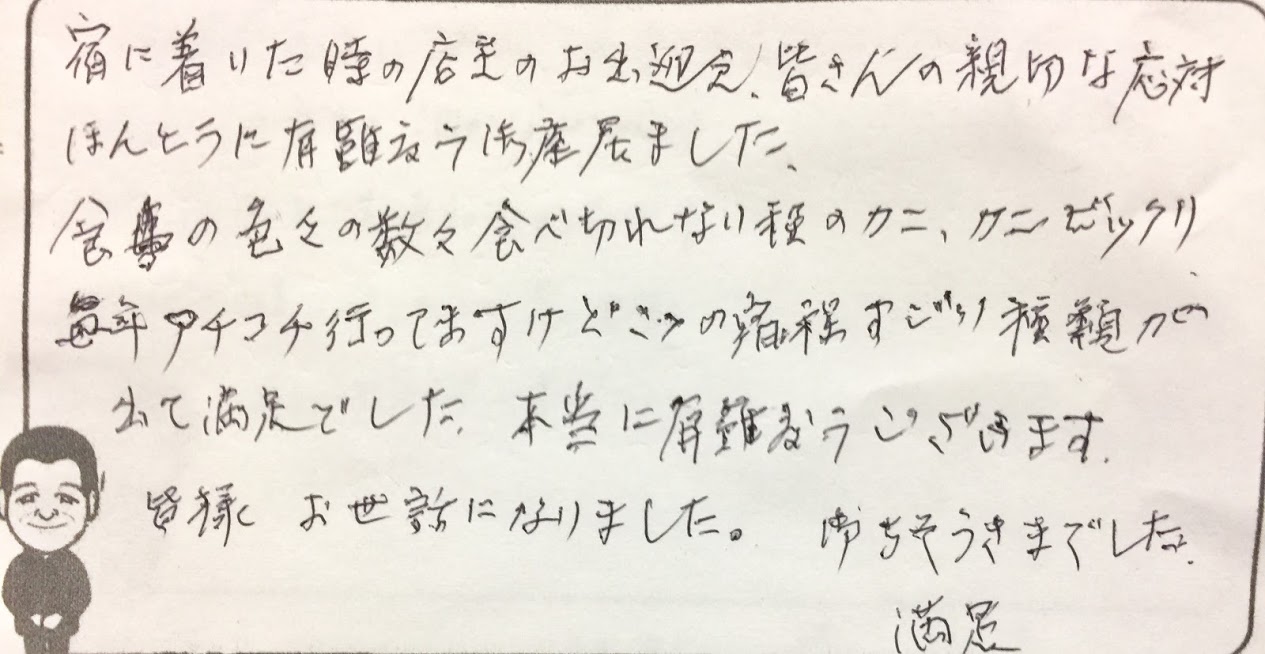 宿に着いた時の店主のお出迎え、皆さんの親切な応対
ほんとうに有難う御座居ました、
食事の色々の数々食べ切れない程のカニ、カニビックリ
毎年アチコチ行ってますけど の 程 種類が
出て満足でした、本当に有難うございます、
皆様 お世話になりました。 御ちそうさまでした、
満足